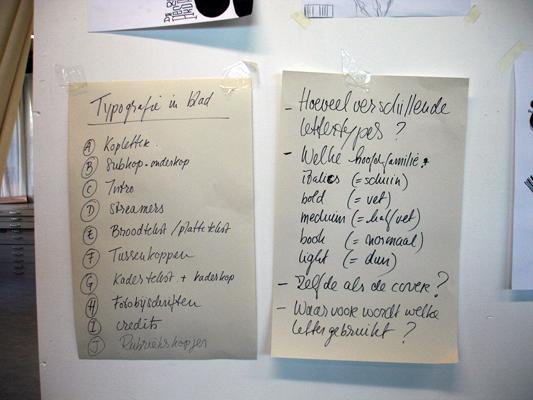 Typografie in blad
A Kopletter
B Subkop-onderkop
C Intro
D Streamers
E Broodtekst/plattetekst
F Tussenkoppen
G Kadertekst + kaderkop
H Fotobijschriften
I credits
J Rubriekskoppen
- Hoeveel verschillende
lettertypes ?
- Welke hoofdfamilie:
italics (= schuin)
bold (= vet)
medium (= half vet)
book (= normaal)
light (= dun)
- Zelfde als de cover?
- Waarvoor wordt welke
letter gebruikt ?